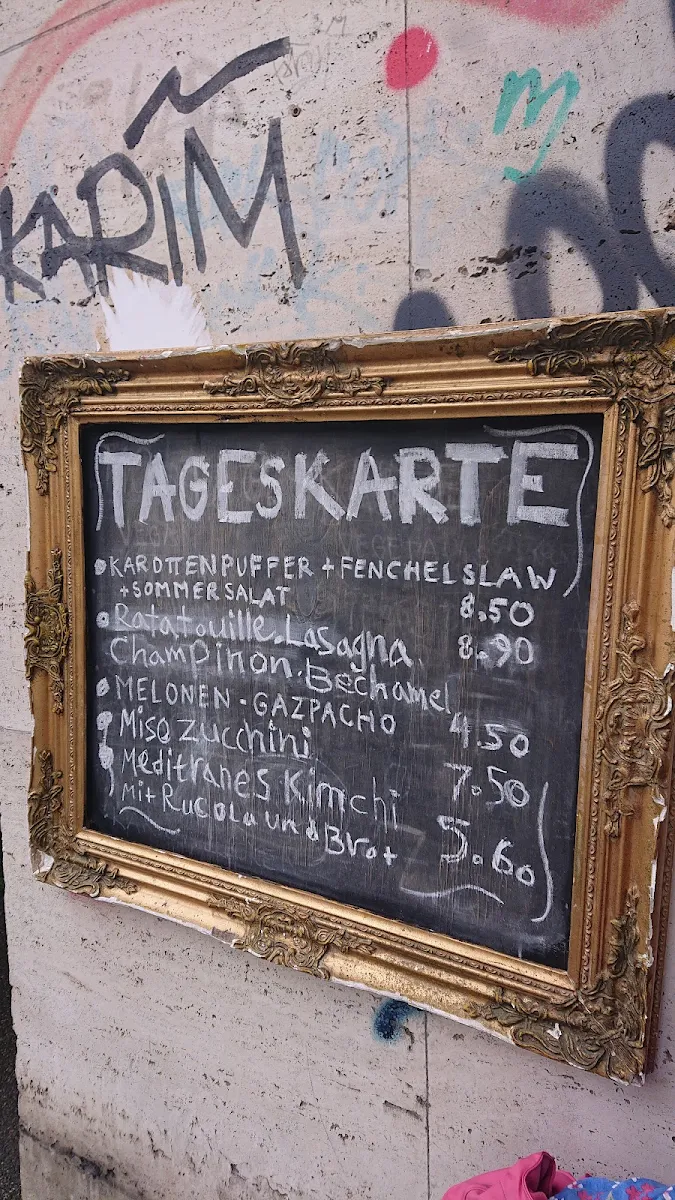 KARIM
m
TAGESKARTE
KAROTTENPUFFER + FENCHELSLAW
+ SOMMERSALAT 8.50
Ratatouille. Lasagna 8.90
Champinon. Bechamel
MELONEN - GAZPACHO 4.50
Miso Zucchini 7.50
Meditranes Kimchi
Mit Rucola und Brot 5.60